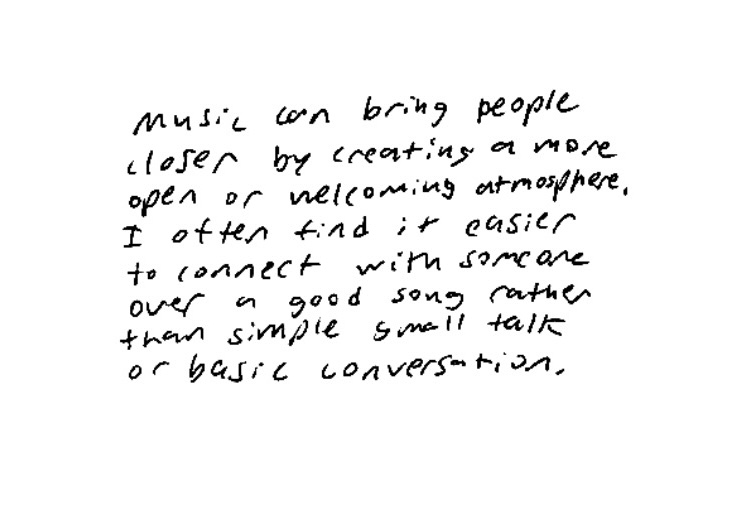 Music can bring people
closer by creating a more
open or welcoming atmosphere.
I often find it easier
to connect with someone
over a good song rather
than simple small talk
or basic conversation.